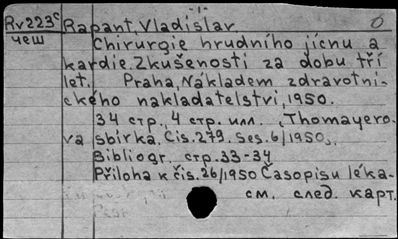 Rv223c Rapant, Vladislav
чеш
Chirurgie hrudního jícnu a
kardie. Zkušenosti za dobu tří
let. Praha, Nákladem zdravotni-
ckého nakladatelství, 1950.
34 стр., 4 стр. илл. „Thomayero-
va sbírka. Čis. 279. Ses. 6/1950„.
Bibliogr. стр. 33-34
Příloha k čís. 26/1950 Časopisu léka-
см. след. карт.